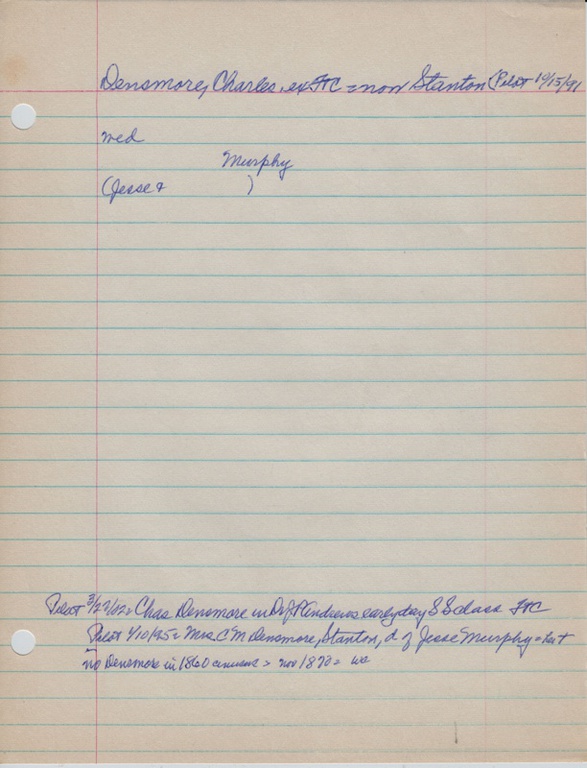 Densmore, Charles, ex FTC = now Stanton (Pilot 10/15/91
wed
Murphy
(Jesse & )
Pilot 3/27/02 = Chas Densmore in Dr J P Andrews early day S S class FTC
Pilot 1/10/95 = Mrs. C M Densmore, Stanton, d of Jesse Murphy = but
no Densmore in 1860 census = nor 1870 =